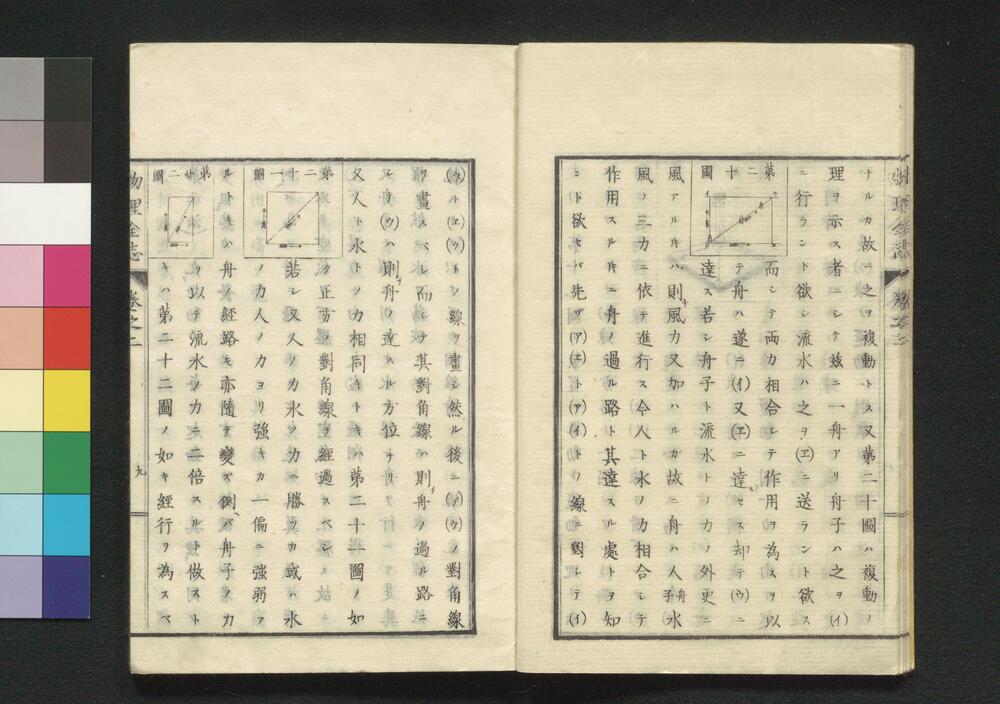 ナルカ故ニ之ヲ複動トス又第二十圖ハ複動ノ
理ヲ示ス者ニシテ玆ニ一舟アリ舟子ハ之ヲ(イ)
ニ行ラント欲シ流水ハ之ヲ(エ)ニ送ラント欲ス
第二十圖
而シテ兩力相合シテ作用ヲ為スヲ以
テ舟ハ遂ニ(イ)又(エ)ニ達セス却テ(ウ)ニ
達ス若シ舟子ト流水トノ力ノ外更ニ
風アルキハ則風力又加ハルガ故ニ舟ハ人舟子水
風ノ三力ニ依テ進行ス今人ト水ノ力相合シテ
作用スルキニ舟ノ過ル路ト其達スル處トヲ知
ニト欲セバ先ヅ(ア)(エ)ト(ア)(イ)トノ線ニ對シテ(イ)
(ウ)ト(エ)(ウ)トノ線ヲ畫シ然ル後ニ(ア)(ウ)ノ對角線
ヲ畫スベシ而シテ其對角線ハ則舟ノ過ル路ニ
シテ(ウ)ハ則舟ノ達スル方位ナリ
又人ト水トノ力相同キトキハ第二十一圖ノ如
第二十一圖
ク正方ノ對角線ヲ經過スベシ
若シ又人ノカ水ノ力ニ勝ツカ或ハ水
ノ力人ノ力ヨリ強キカ一偏ニ強弱ア
ルトキハ舟ノ經路モ亦隨テ變ズ例バ舟子ノ力
第廿二圖
ヲ以テ流水ノ力ニ二倍スルト做スト
キハ第二十二圖ノ如キ經行ヲ為スベ
物理全志
卷之二
九